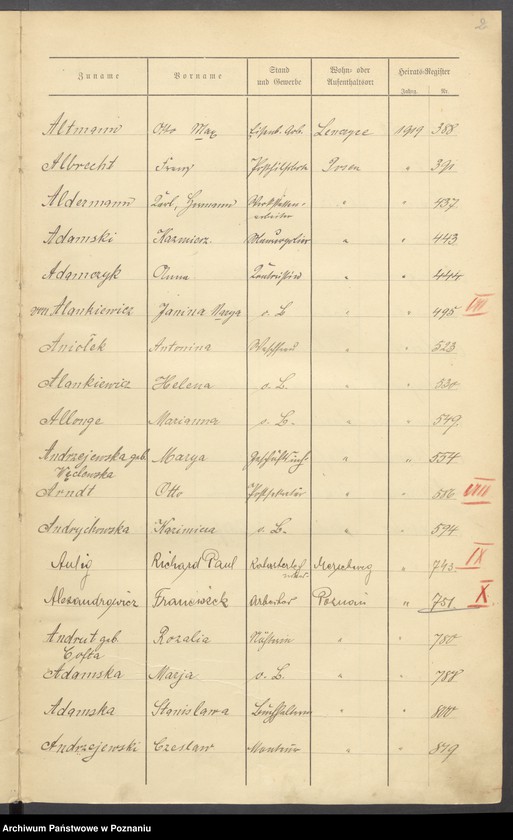 2
Zuname Vorname Stand und Gewerbe Wohn- oder Aufenthaltsort Heirats-Register
Jahrg. Nr.
Altmann Otto Max Eisenb. Arb. 1919 388
Albrecht Franz Posen " 391
Aldermann Karl, Hermann Werkstätten- " " 437
arbeiter
Adamski Kazmierz " " 443
Adamczyk Anna " " 444
von Alankiewicz Janina Marya o. B " " 495 VII
Aniołek Antonina " " 523
Alankiewicz Helena o. B. " " 530
Allonge Marianna o. B. " " 549
Andrzejewska geb. Marya " " 554
Węclewska
Arndt Otto Postsekretär " " 586 VIII
Andrychowska Kazimiera o. B. " " 594
Aulig Richard Paul Merseburg " 743 IX
Alexandrowicz Franciszek Arbeiter Poznań " 751 X
Andrut geb. Rozalia Näherin " " 780
Cofta
Adamska Marja o. B. " " 788
Adamska Stanisława Buchhalterin " " 800
Andrzejewski Czesław Monteur " " 849
Archiwum Państwowe w Poznaniu